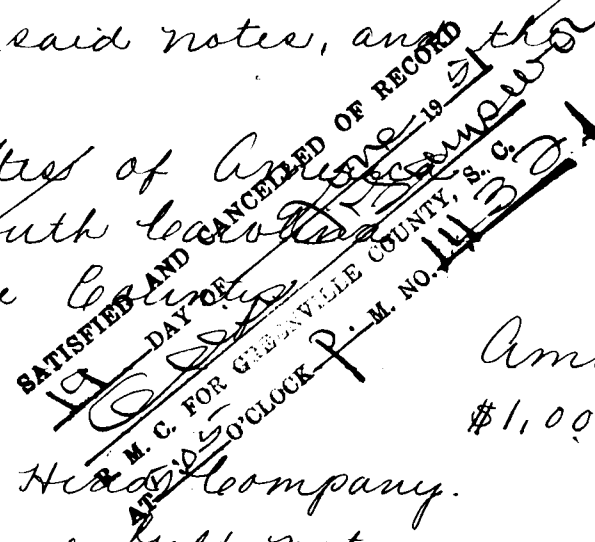 said notes, and the
tes of America
uth Carolina
e County
SATISFIED AND CANCELLED OF RECORD
19 DAY OF June 1951
R. M. C. FOR GREENVILLE COUNTY, S. C.
AT O'CLOCK P. M. NO. 1432
Am
$1,00
Company.